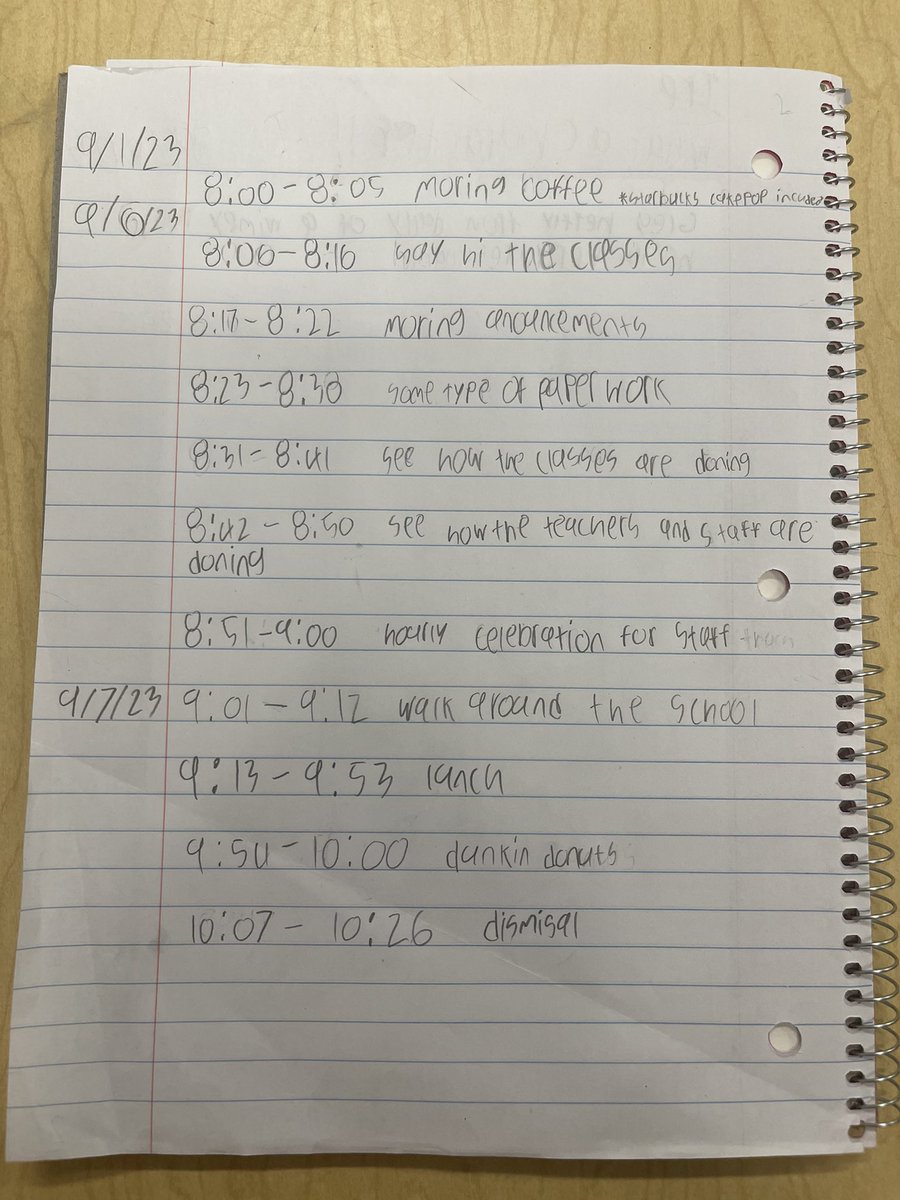 9/1/23
8:00-8:05 moring coffee *starbucks cakepop incuded
9/6/23
8:06-8:16 say hi the classes
8:17-8:22 moring anouncements
8:23-8:30 some type of paper work
8:31-8:41 see how the classes are doning
8:42-8:50 see how the teachers and staff are
doning
8:51-9:00 hourly celebration for staff
9/7/23 9:01-9:12 walk around the school
9:13-9:53 lunch
9:54-10:00 dunkin donuts
10:07-10:26 dismisal